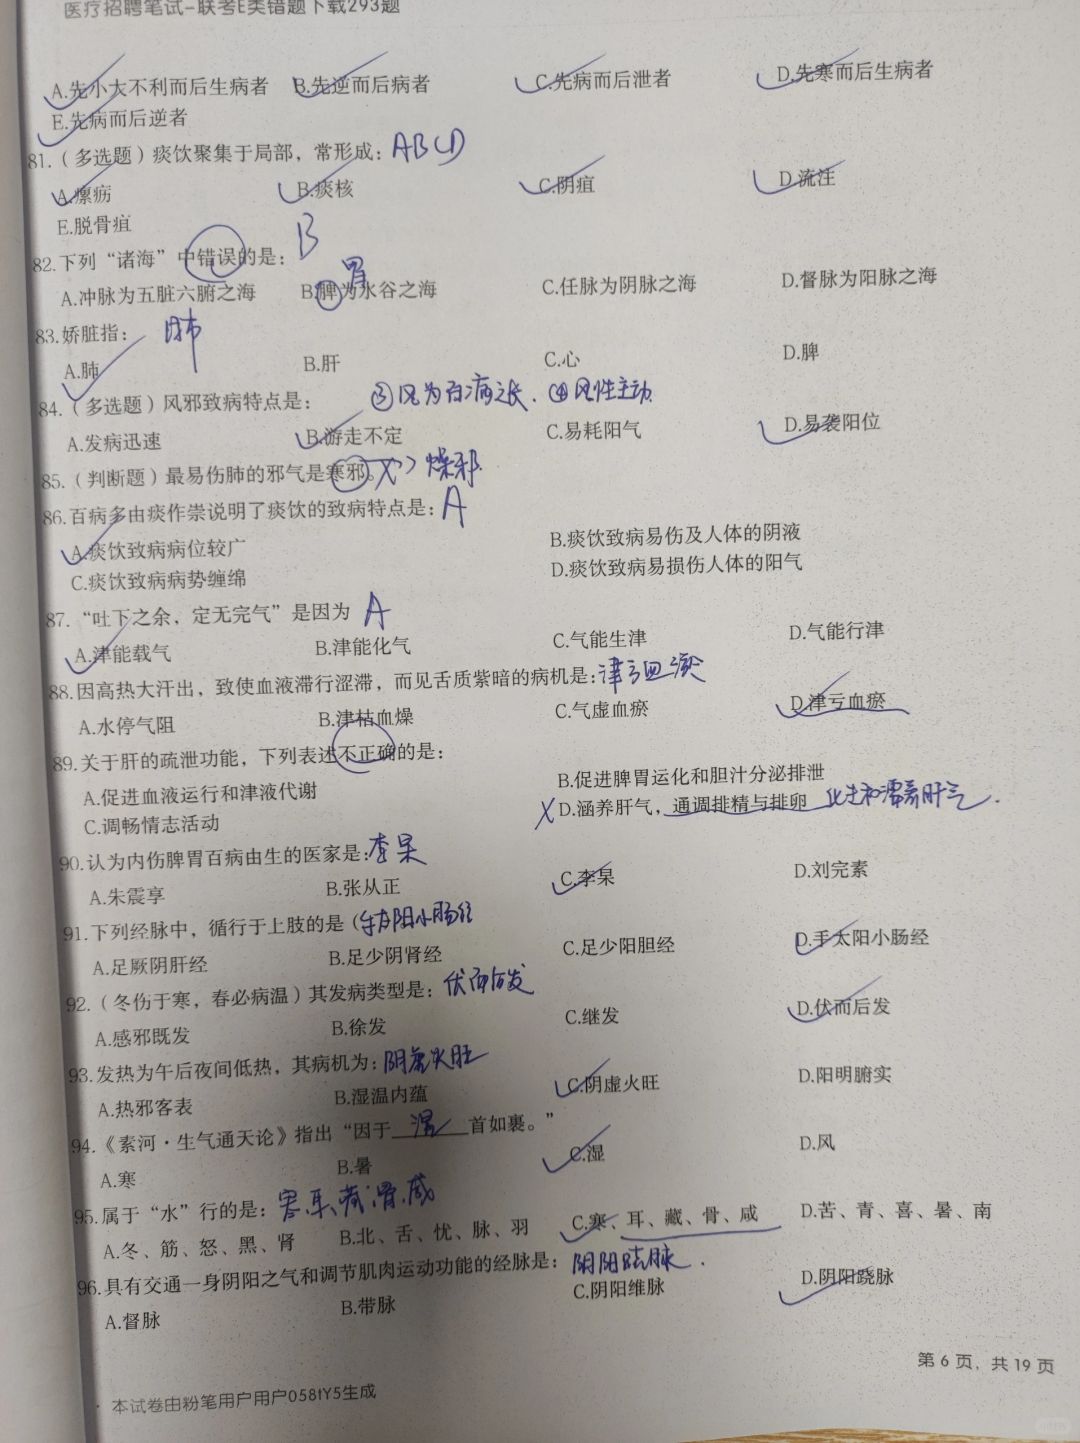 医疗招聘笔试-联考E类错题下载293题
A.先小大不利而后生病者 B.先逆而后病者 C.先病而后泄者 D.先寒而后生病者
E.先病而后逆者
81.（多选题）痰饮聚集于局部，常形成：ABCD
A.瘰疬 B.痰核 C.阴疽 D.流注
E.脱骨疽
82.下列“诸海”中错误的是： B
胃
A.冲脉为五脏六腑之海 B.脾为水谷之海 C.任脉为阴脉之海 D.督脉为阳脉之海
83.娇脏指： 肺
A.肺 B.肝 C.心 D.脾
84.（多选题）风邪致病特点是： ③风为百病之长. ④风性主动
A.发病迅速 B.游走不定 C.易耗阳气 D.易袭阳位
85.（判断题）最易伤肺的邪气是寒邪。 X 燥邪
86.百病多由痰作祟说明了痰饮的致病特点是：A
A.痰饮致病病位较广 B.痰饮致病易伤及人体的阴液
C.痰饮致病病势缠绵 D.痰饮致病易损伤人体的阳气
87.“吐下之余，定无完气”是因为 A
A.津能载气 B.津能化气 C.气能生津 D.气能行津
88.因高热大汗出，致使血液滞行涩滞，而见舌质紫暗的病机是：津亏血瘀
A.水停气阻 B.津枯血燥 C.气虚血瘀 D.津亏血瘀
89.关于肝的疏泄功能，下列表述不正确的是：
A.促进血液运行和津液代谢 B.促进脾胃运化和胆汁分泌排泄
C.调畅情志活动 X D.涵养肝气，通调排精与排卵 化生和濡养肝气.
90.认为内伤脾胃百病由生的医家是：李杲
A.朱震享 B.张从正 C.李杲 D.刘完素
91.下列经脉中，循行于上肢的是（手太阳小肠经
A.足厥阴肝经 B.足少阴肾经 C.足少阳胆经 D.手太阳小肠经
92.（冬伤于寒，春必病温）其发病类型是：伏而后发
A.感邪既发 B.徐发 C.继发 D.伏而后发
93.发热为午后夜间低热，其病机为：阴虚火旺
A.热邪客表 B.湿温内蕴 C.阴虚火旺 D.阳明腑实
94.《素河·生气通天论》指出“因于 湿 首如裹。”
A.寒 B.暑 C.湿 D.风
95.属于“水”行的是：寒.耳.藏.骨.咸
A.冬、筋、怒、黑、肾 B.北、舌、忧、脉、羽 C.寒、耳、藏、骨、咸 D.苦、青、喜、暑、南
96.具有交通一身阴阳之气和调节肌肉运动功能的经脉是：阴阳跷脉.
A.督脉 B.带脉 C.阴阳维脉 D.阴阳跷脉
第 6 页，共 19 页
本试卷由粉笔用户用户058tY5生成